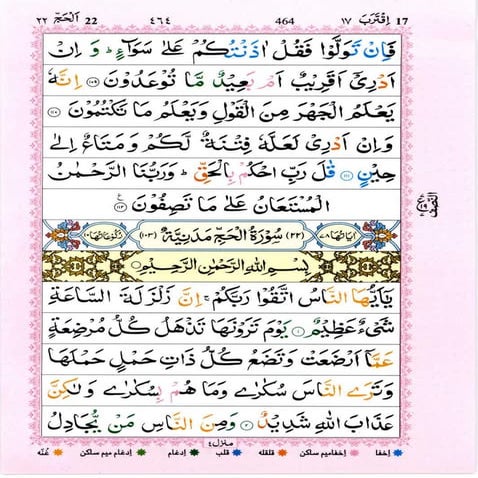 اِقْتَرَبَ ١٧ 17 464 ٤٦٤ اَلْحَجّ ٢٢ 22
فَاِنْ تَوَلَّوْا فَقُلْ اٰذَنْتُكُمْ عَلٰى سَوَآءٍ ؕ وَ اِنْ
اَدْرِیْۤ اَقَرِیْبٌ اَمْ بَعِیْدٌ مَّا تُوْعَدُوْنَ ۝۱۰۹ اِنَّهٗ
یَعْلَمُ الْجَهْرَ مِنَ الْقَوْلِ وَ یَعْلَمُ مَا تَكْتُمُوْنَ ۝۱۱۰
وَ اِنْ اَدْرِیْ لَعَلَّهٗ فِتْنَةٌ لَّكُمْ وَ مَتَاعٌ اِلٰى
حِیْنٍ ۝۱۱۱ قٰلَ رَبِّ احْكُمْ بِالْحَقِّ ؕ وَ رَبُّنَا الرَّحْمٰنُ
الْمُسْتَعَانُ عَلٰى مَا تَصِفُوْنَ ۝۱۱۲
اٰیَاتُهَا ٧٨ (٢٢) سُوْرَةُ الْحَجِّ مَدَنِیَّةٌ (١٠٣) رُكُوْعَاتُهَا ١٠
بِسْمِ اللّٰهِ الرَّحْمٰنِ الرَّحِیْمِ
یٰۤاَیُّهَا النَّاسُ اتَّقُوْا رَبَّكُمْ ۚ اِنَّ زَلْزَلَةَ السَّاعَةِ
شَیْءٌ عَظِیْمٌ ۝۱ یَوْمَ تَرَوْنَهَا تَذْهَلُ كُلُّ مُرْضِعَةٍ
عَمَّاۤ اَرْضَعَتْ وَ تَضَعُ كُلُّ ذَاتِ حَمْلٍ حَمْلَهَا
وَ تَرَى النَّاسَ سُكٰرٰى وَ مَا هُمْ بِسُكٰرٰى وَ لٰكِنَّ
عَذَابَ اللّٰهِ شَدِیْدٌ ۝۲ وَ مِنَ النَّاسِ مَنْ یُّجَادِلُ
منزل ٤
اخفا اخفا میم ساکن قلقله قلب ادغام ادغام میم ساکن غنّه